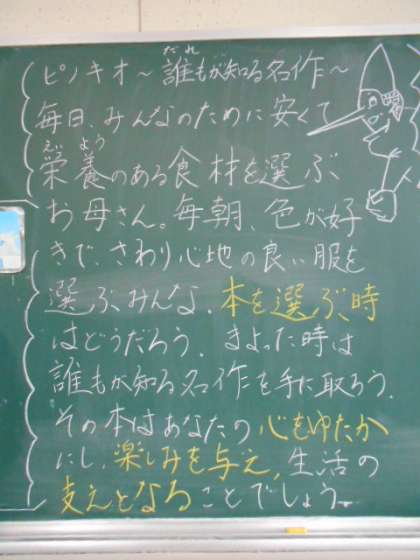 ピノキオ～誰もが知る名作～
だれ
毎日、みんなのために安くて
えい よう
栄養のある食材を選ぶ
お母さん。毎朝、色が好
きで、さわり心地の良い服を
選ぶみんな。本を選ぶ時
はどうだろう。まよった時は
誰もが知る名作を手に取ろう。
その本はあなたの心をゆたか
にし、楽しみを与え、生活の
支えとなることでしょう。